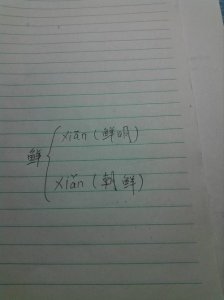 鲜
xiān (鲜明)
xiǎn (朝鲜)